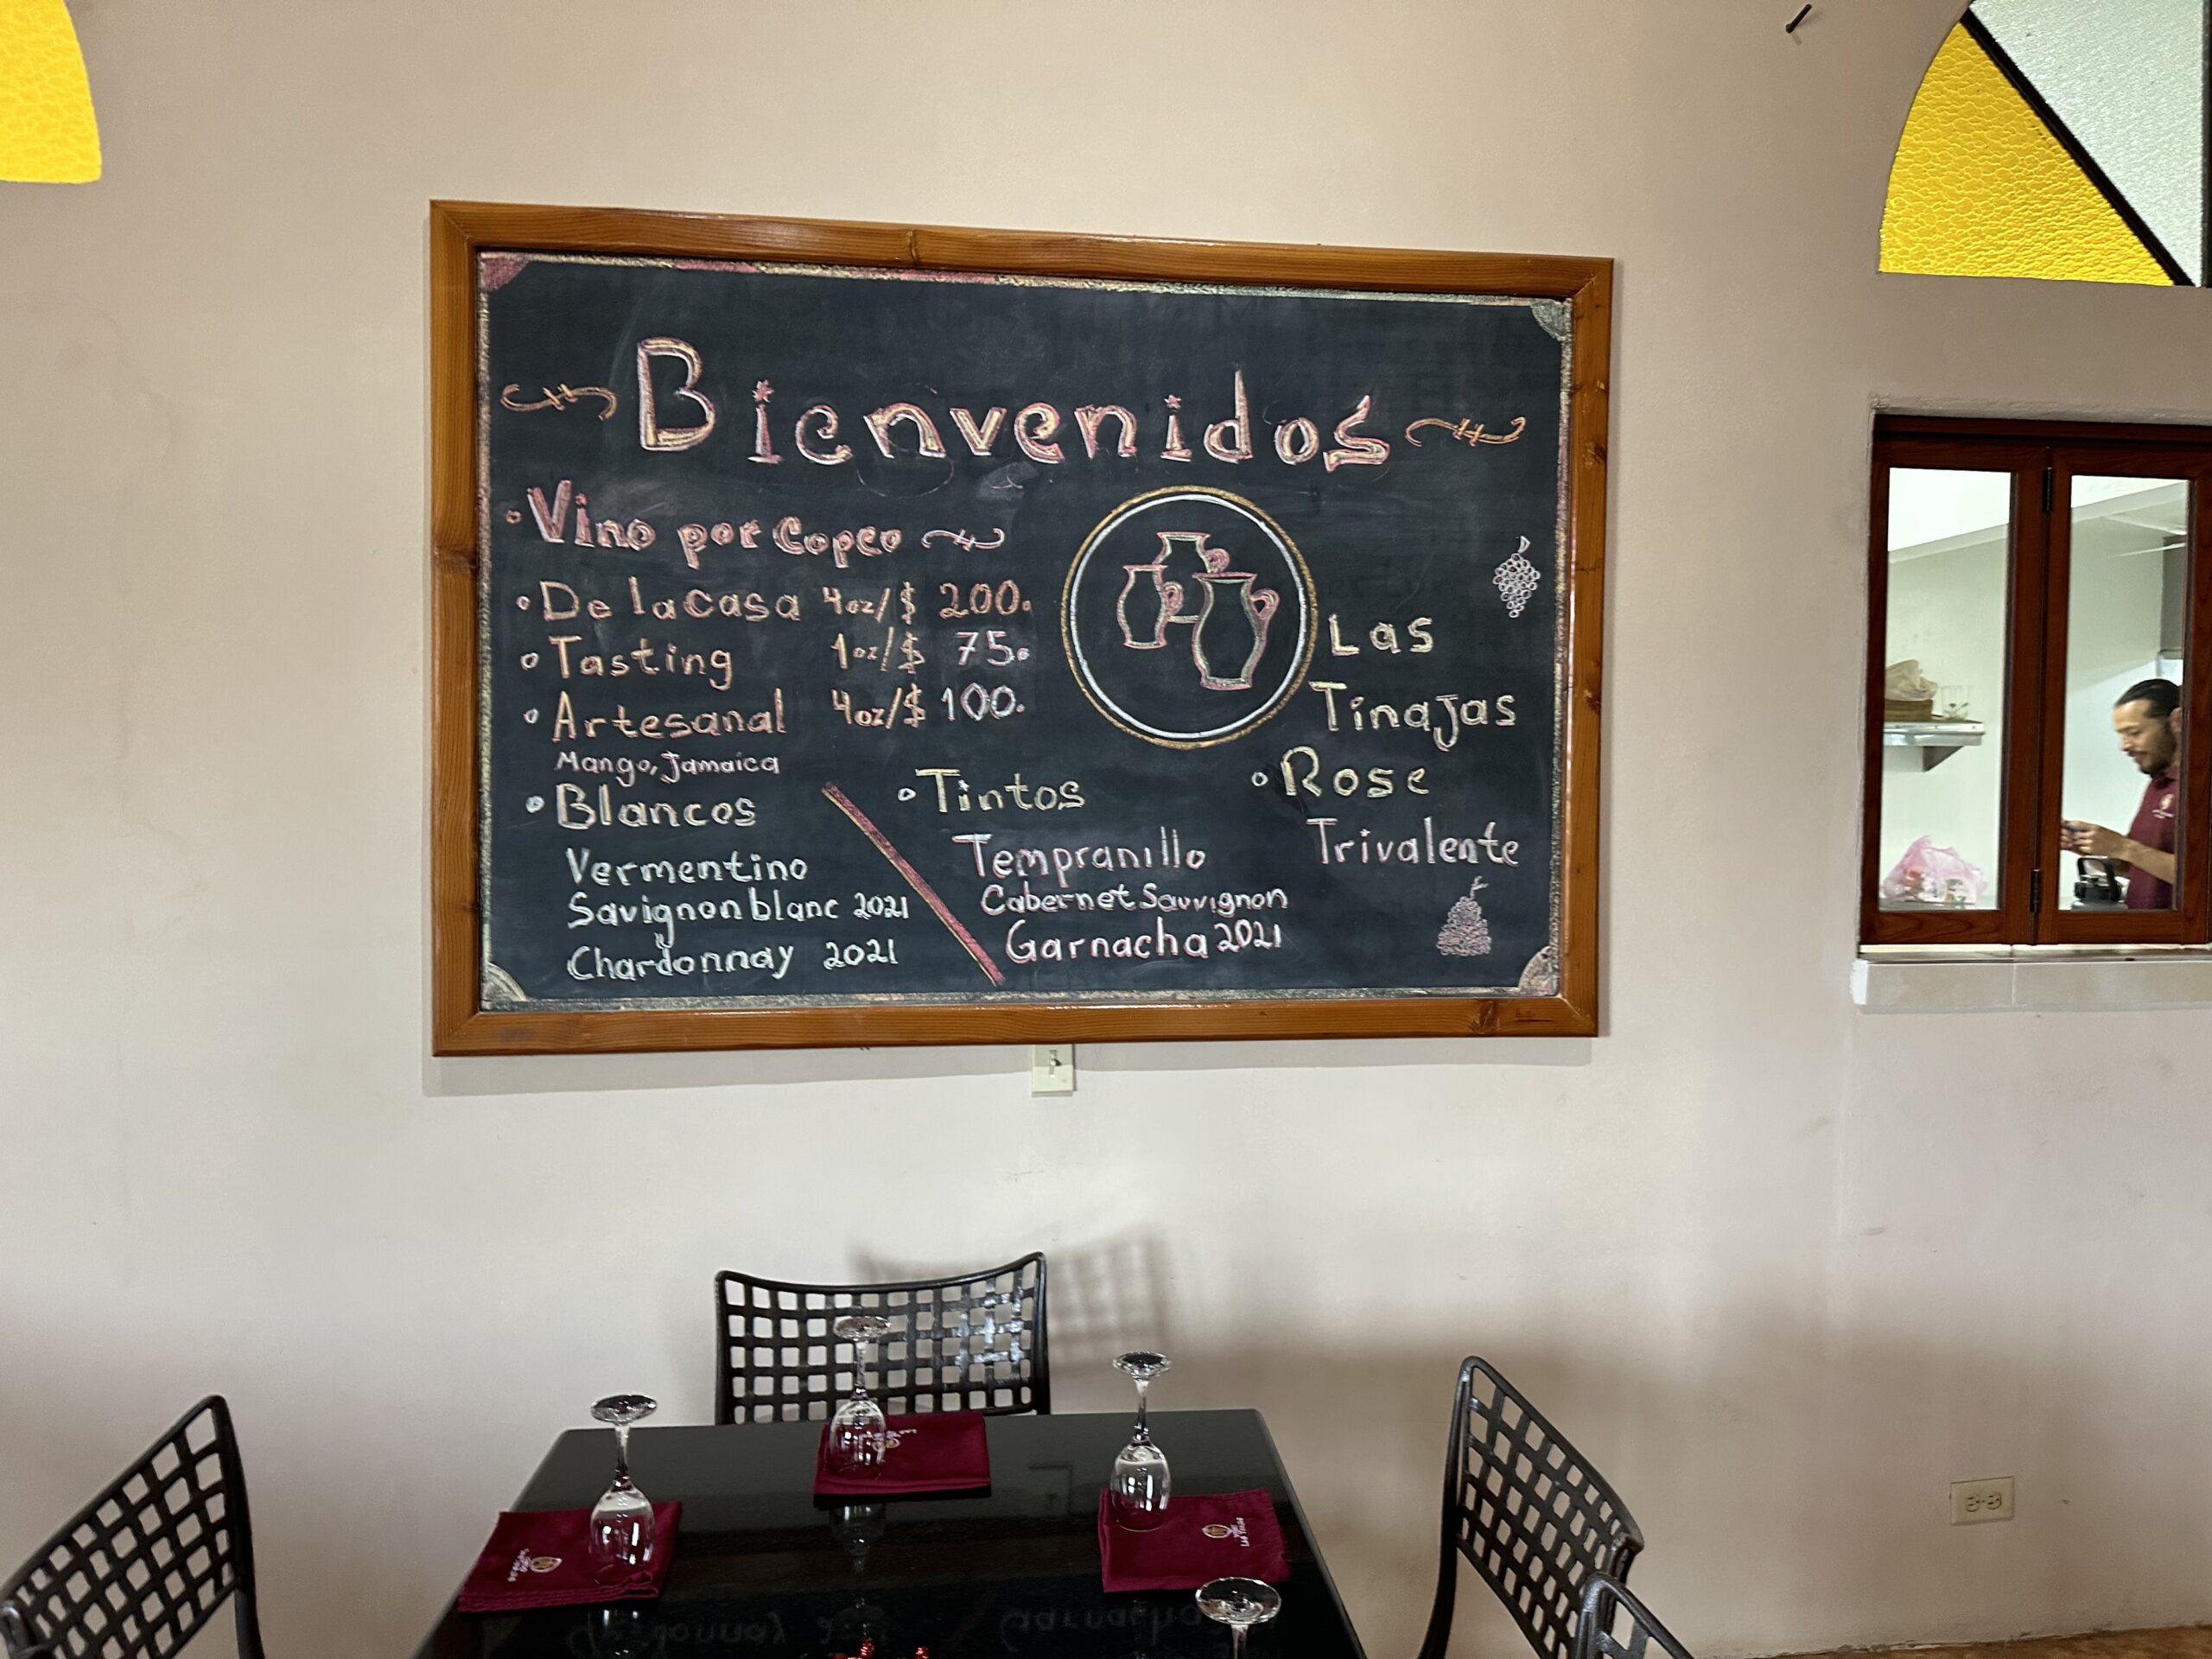 Bienvenidos
• Vino por Copeo
• De la casa 4oz/$ 200.
• Tasting 1oz/$ 75.
• Artesanal 4oz/$ 100.
Mango, Jamaica
• Blancos
Vermentino
Savignon blanc 2021
Chardonnay 2021
• Tintos
Tempranillo
Cabernet Sauvignon
Garnacha 2021
Las
Tinajas
• Rose
Trivalente